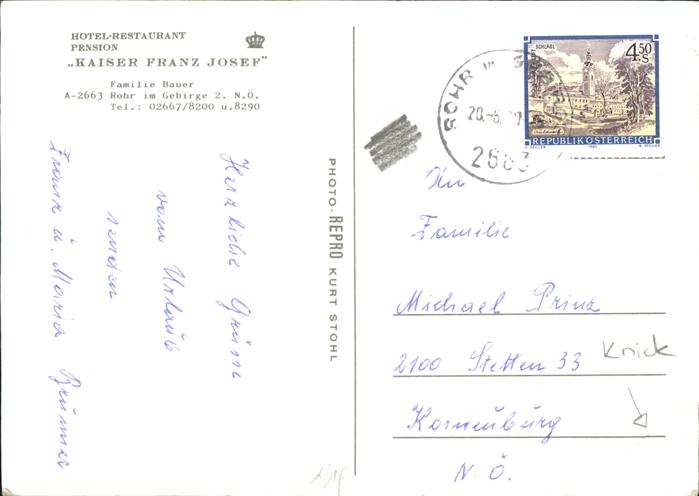 HOTEL-RESTAURANT
PENSION
„KAISER FRANZ JOSEF"
Familie Bauer
A-2663 Rohr im Gebirge 2. N.Ö.
Tel.: 02667/8200 u.8290
Herzliche Grüße
vom Urlaub
senden
Franz u. Maria Brunner
PHOTO-REPRO KURT STOHL
ROHR IM
20.-6.
STIFT SCHLÄGL
4.50
S
REPUBLIK ÖSTERREICH
An
Familie
Michael Prinz
2100 Stetten 33
Korneuburg
N.Ö.
Knick